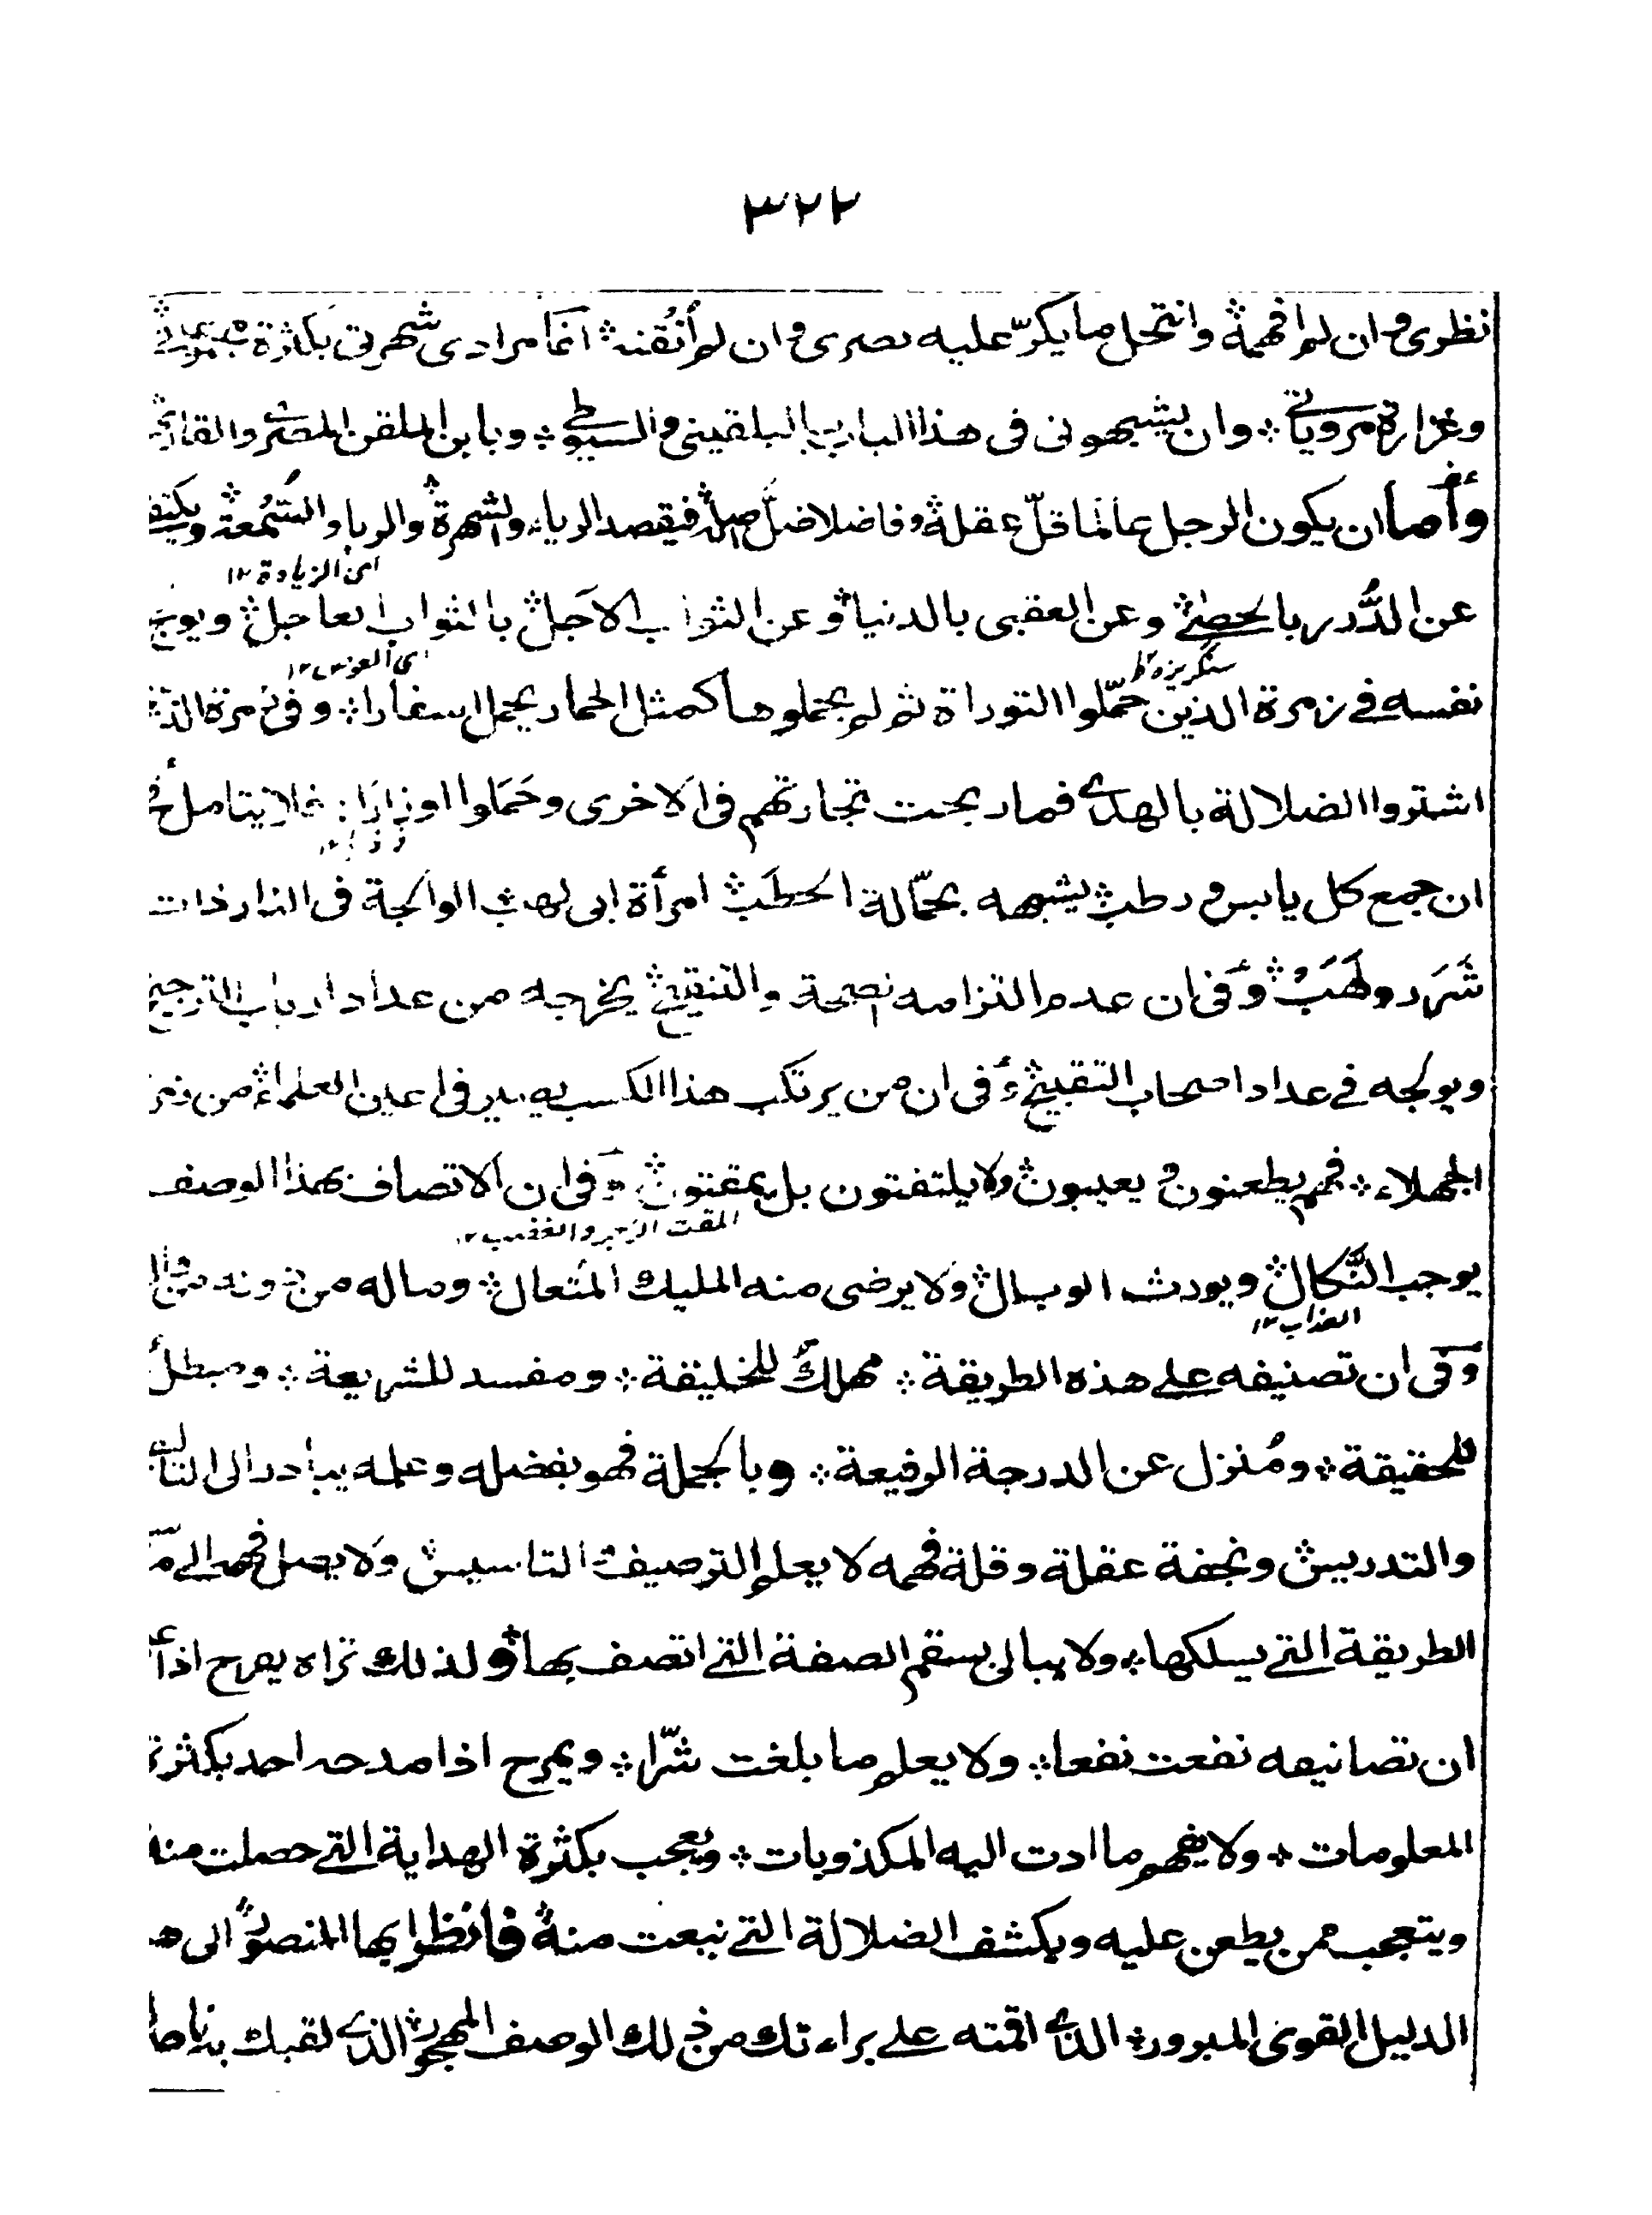 ٣٢٢
نظرى وان لم افهمه وانتحل ما يكرّ عليه بصرى وان لم أتقنه انما مرادى شهرتى بكثرة
وغزارة مروياتى وان يشبهونى فى هذا الباب بالبلقينى والسيوطى وبابن الملقن المصرى والقارى
وأما ان يكون الرجل عالما قلّ عقله وفاضلا ضلّ اصله فيقصد الرياء والشهرة والربا والسُّمعة ويكتفى
اى الزيادة ١٢
عن الدُّرر بالحصى وعن العقبى بالدنيا وعن الثواب الآجل بالثواب العاجل ويولج
سنگريزه ١٢ اى العوض ١٢
نفسه فى زمرة الذين حمّلوا التوراة ثم لم يحملوها كمثل الحمار يحمل اسفارا وفى زمرة الذين
اشتروا الضلالة بالهدى فما ربحت تجارتهم فى الاخرى وحَمَلوا اوزارًا فلا يتأمل فى
ان جمع كل يابس ورطب يشبهه بحمّالة الحطَب امرأة ابى لهب الوالجة فى النار ذات
شَرَر ولَهَب وفى ان عدم التزامه الصحة والتنقيح يخرجه من عداد ارباب الترجيح
ويولجه فى عداد اصحاب التقبيح وفى ان من يرتكب هذا الكسب يصير فى اعين العلماء من زمرة
الجهلاء فهم يطعنون ويعيبون ولا يلتفتون بل يمقتون وفى ان الاتصاف بهذا الوصف
المقت الزجر والغضب ١٢
يوجب النَّكال ويورث الوبال ولا يرضى منه المليك المتعال وماله من دونه من وال
العذاب ١٢
وفى ان تصنيفه على هذه الطريقة مهلك للخليقة ومفسد للشريعة ومبطل
للحقيقة ومُنزل عن الدرجة الرفيعة وبالجملة فهو بفضله وعلمه يبادر الى التأليف
والتدريس وبخفة عقله وقلة فهمه لا يعلم الترصيف التاسيس ولا يصل فهمه الى
الطريقة التى يسلكها ولا يبالى بسقم الصفة التى اتصف بها ولذلك تراه يفرح اذا
ان تصانيفه نفعت نفعا ولا يعلم ما بلغت شرّا ويمرح اذا مدحه احد بكثرة
المعلومات ولا يفهم ما ادت اليه المكذوبات ويعجب بكثرة الهداية التى حصلت منه
ويتعجب ممن يطعن عليه ويكشف الضلالة التى نبعت منه فانظر ايها المنصور الى هذا
الدليل القوى المبرور الذى اقمته على براءتك من ذلك الوصف المهجور الذى لقبك به